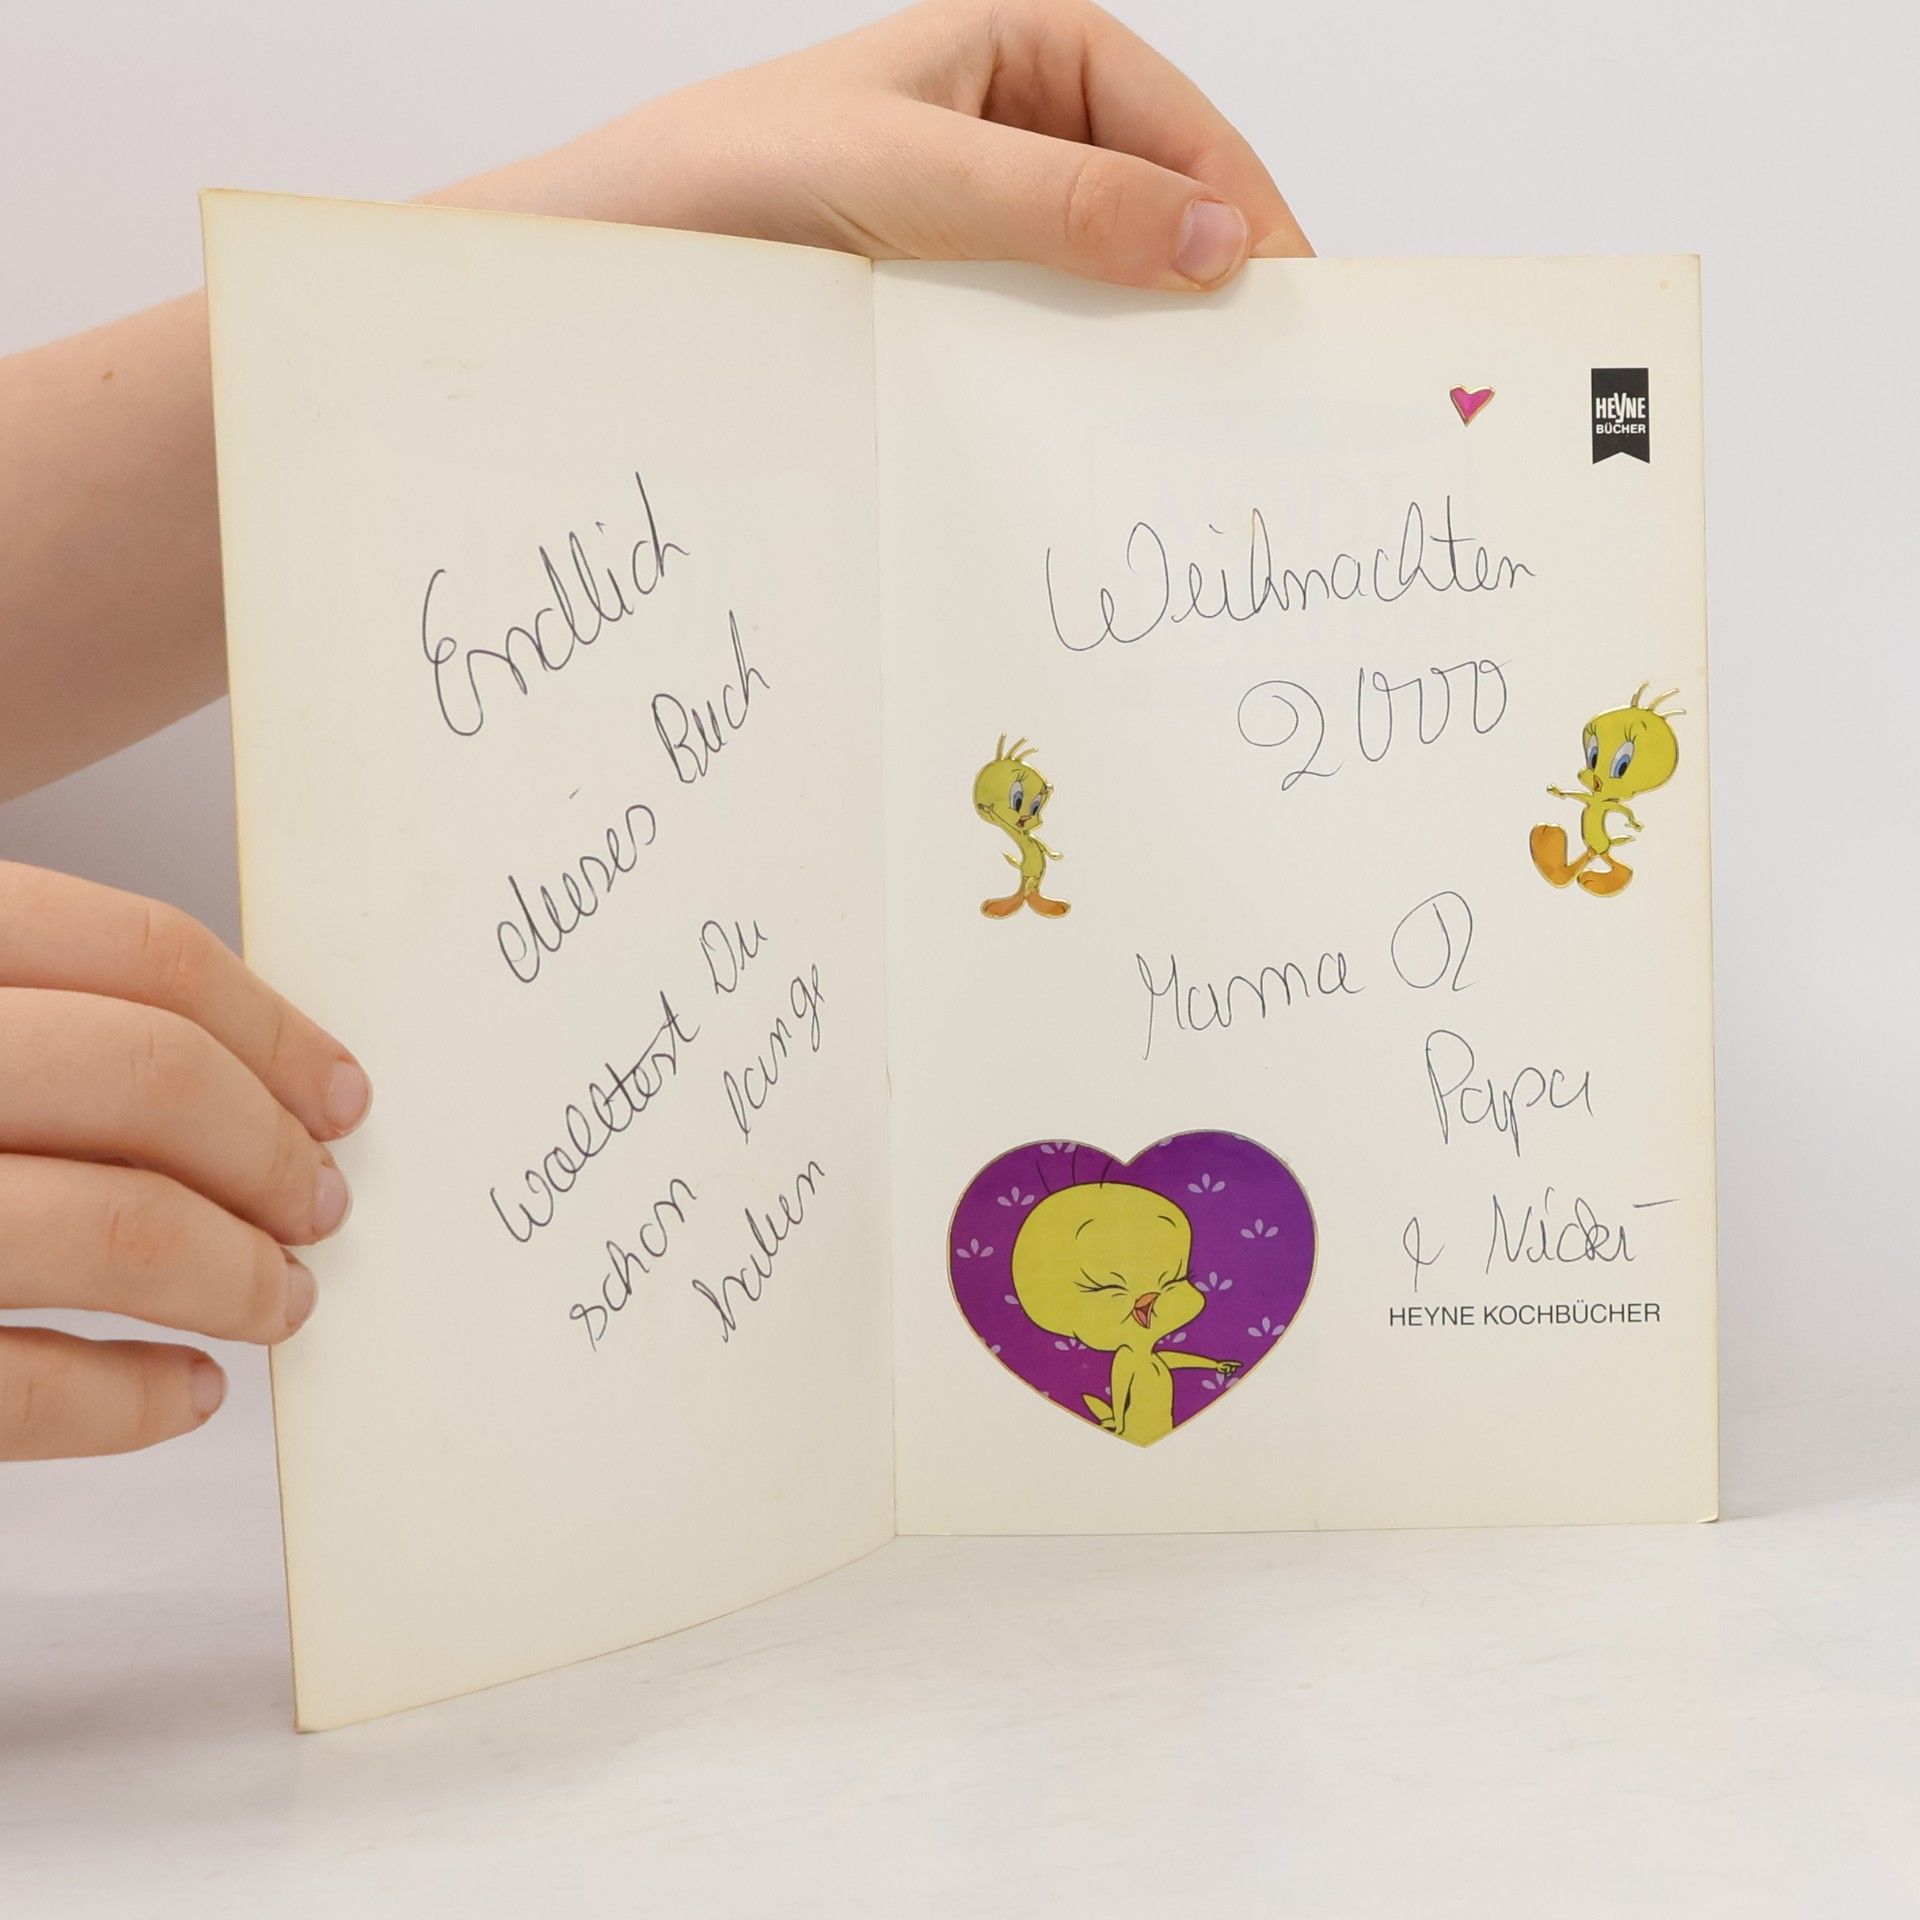 Endlich
dieses Buch
wolltest Du
schon lange
haben
HEYNE
BÜCHER
Weihnachten
2000
Mama &
Papa
& Nicki
HEYNE KOCHBÜCHER